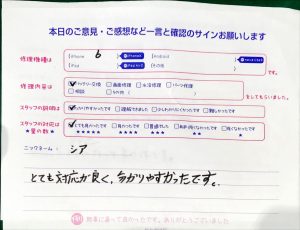 本日のご意見・ご感想など一言と確認のサインお願いします
修理機種は
iPhone 6
Android
iPad
その他
です。
修理内容は
バッテリー交換 画面修理 水没修理 パーツ修理
をしてもらいました。
スタッフの説明は
分かりやすかったです 理解できました 少しわかりにくかったです 難しかったです
スタッフの対応は
★星の数★
とても良かった 良かった 普通でした
★★★★★ ★★★★ ★★★ ★★ ★
ニックネーム：シア
とても対応が良く、分かりやすかったです。
修理に来って良かったです。ありがとうございました